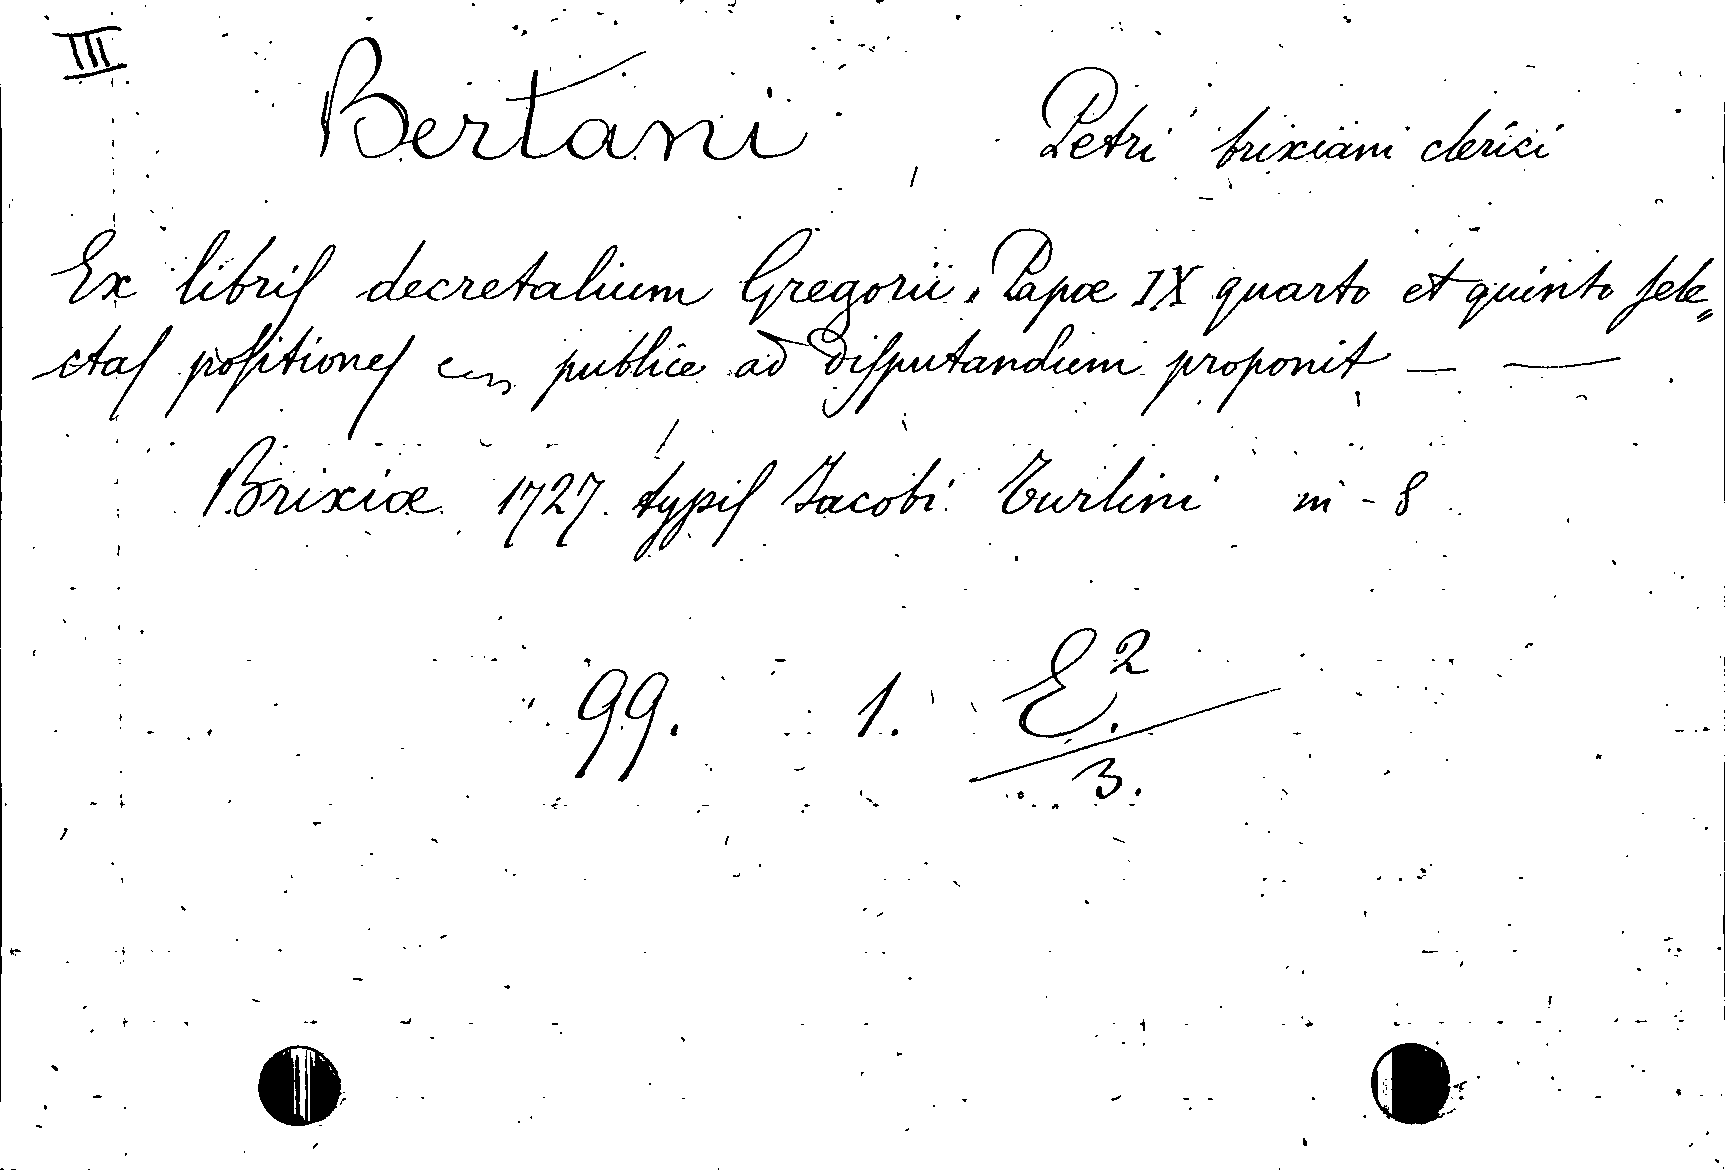 III
Bertani Petri brixiani clerici
Ex libris decretalium Gregorii Papæ IX quarto et quinto sele„
ctas positiones publice ad disputandum proponit — —
Brixiæ 1727. typis Jacobi Turlini in - 8
99. 1. E.²
3.